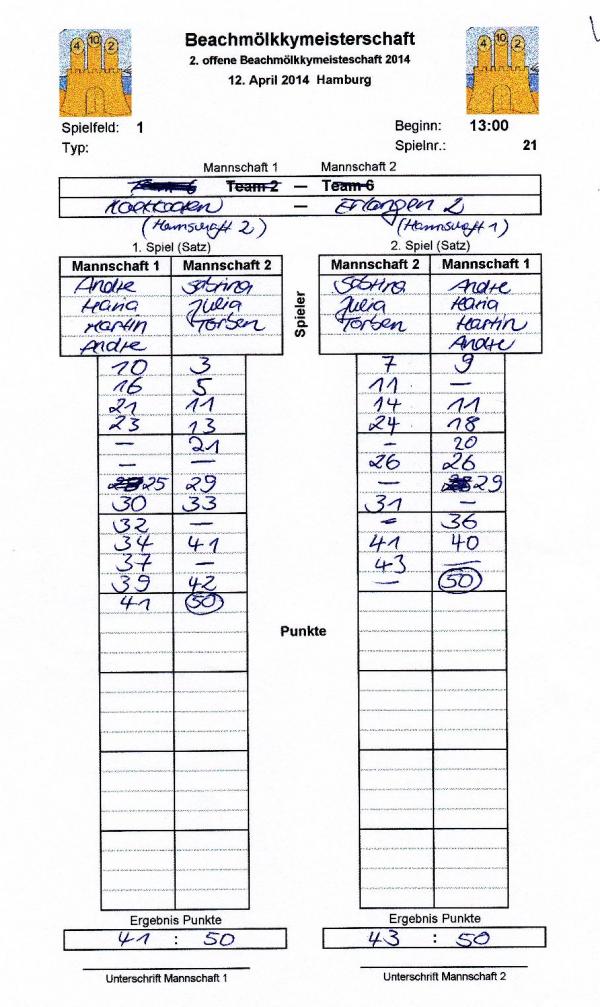 Beachmölkkymeisterschaft
2. offene Beachmölkkymeisteschaft 2014
12. April 2014 Hamburg
4 10 2
4 10 2
Spielfeld: 1
Beginn: 13:00
Typ:
Spielnr.: 21
Mannschaft 1 Mannschaft 2
Team 6 Team 2 — Team 6
— Erlangen 2
(Mannschaft 2) (Mannschaft 1)
1. Spiel (Satz) 2. Spiel (Satz)
Mannschaft 1 Mannschaft 2 Spieler Mannschaft 2 Mannschaft 1
Andre Sabrina Sabrina Andre
Maria Julia Julia Maria
Martin Torben Torben Martin
Andre Andre
10 3 7 9
16 5 11 —
21 11 14 11
23 13 24 18
— 21 - 20
— — 26 26
25 29 — 29
30 33 31 —
32 — - 36
34 41 41 40
37 — 43 —
39 42 — 50
41 50
Punkte
Ergebnis Punkte Ergebnis Punkte
41 : 50 43 : 50
Unterschrift Mannschaft 1 Unterschrift Mannschaft 2